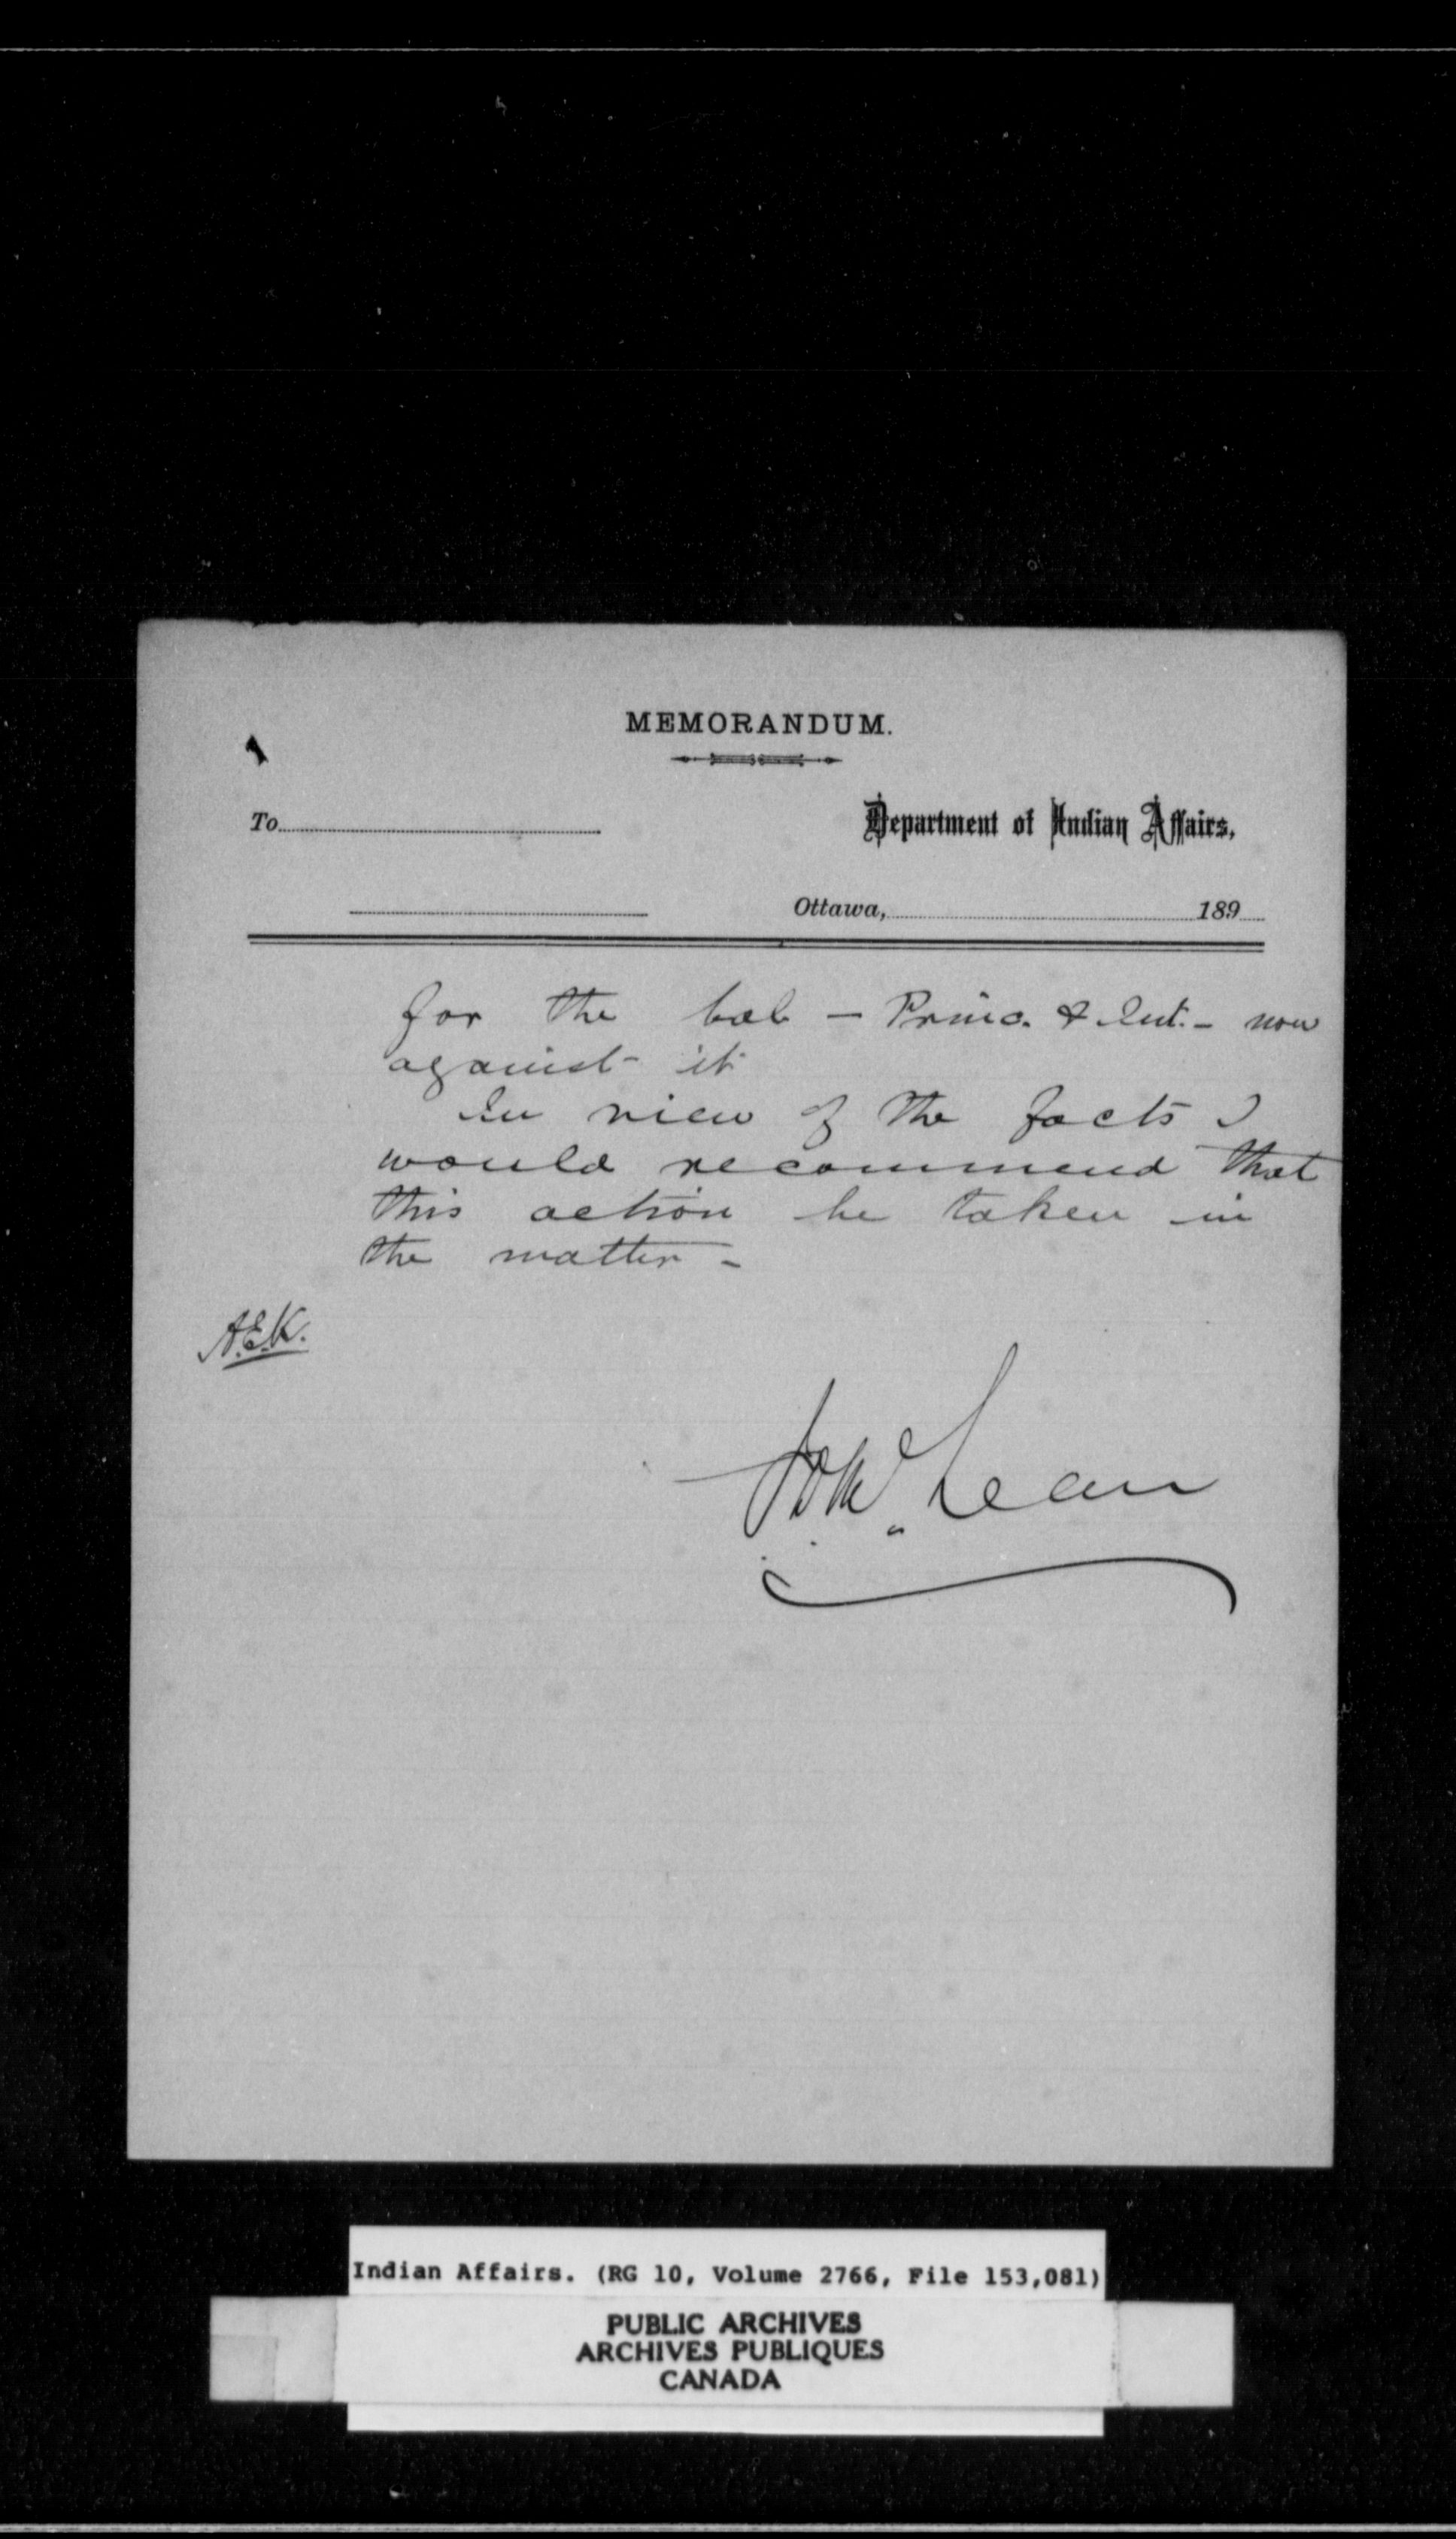 MEMORANDUM.
To
Department of Indian Affairs,
Ottawa, 189
for the bal - Princ. & Int. - now
against it
In view of the facts I
would recommend that
this action be taken in
the matter -
A.E.K.
McLean
Indian Affairs. (RG 10, Volume 2766, File 153,081)
PUBLIC ARCHIVES
ARCHIVES PUBLIQUES
CANADA